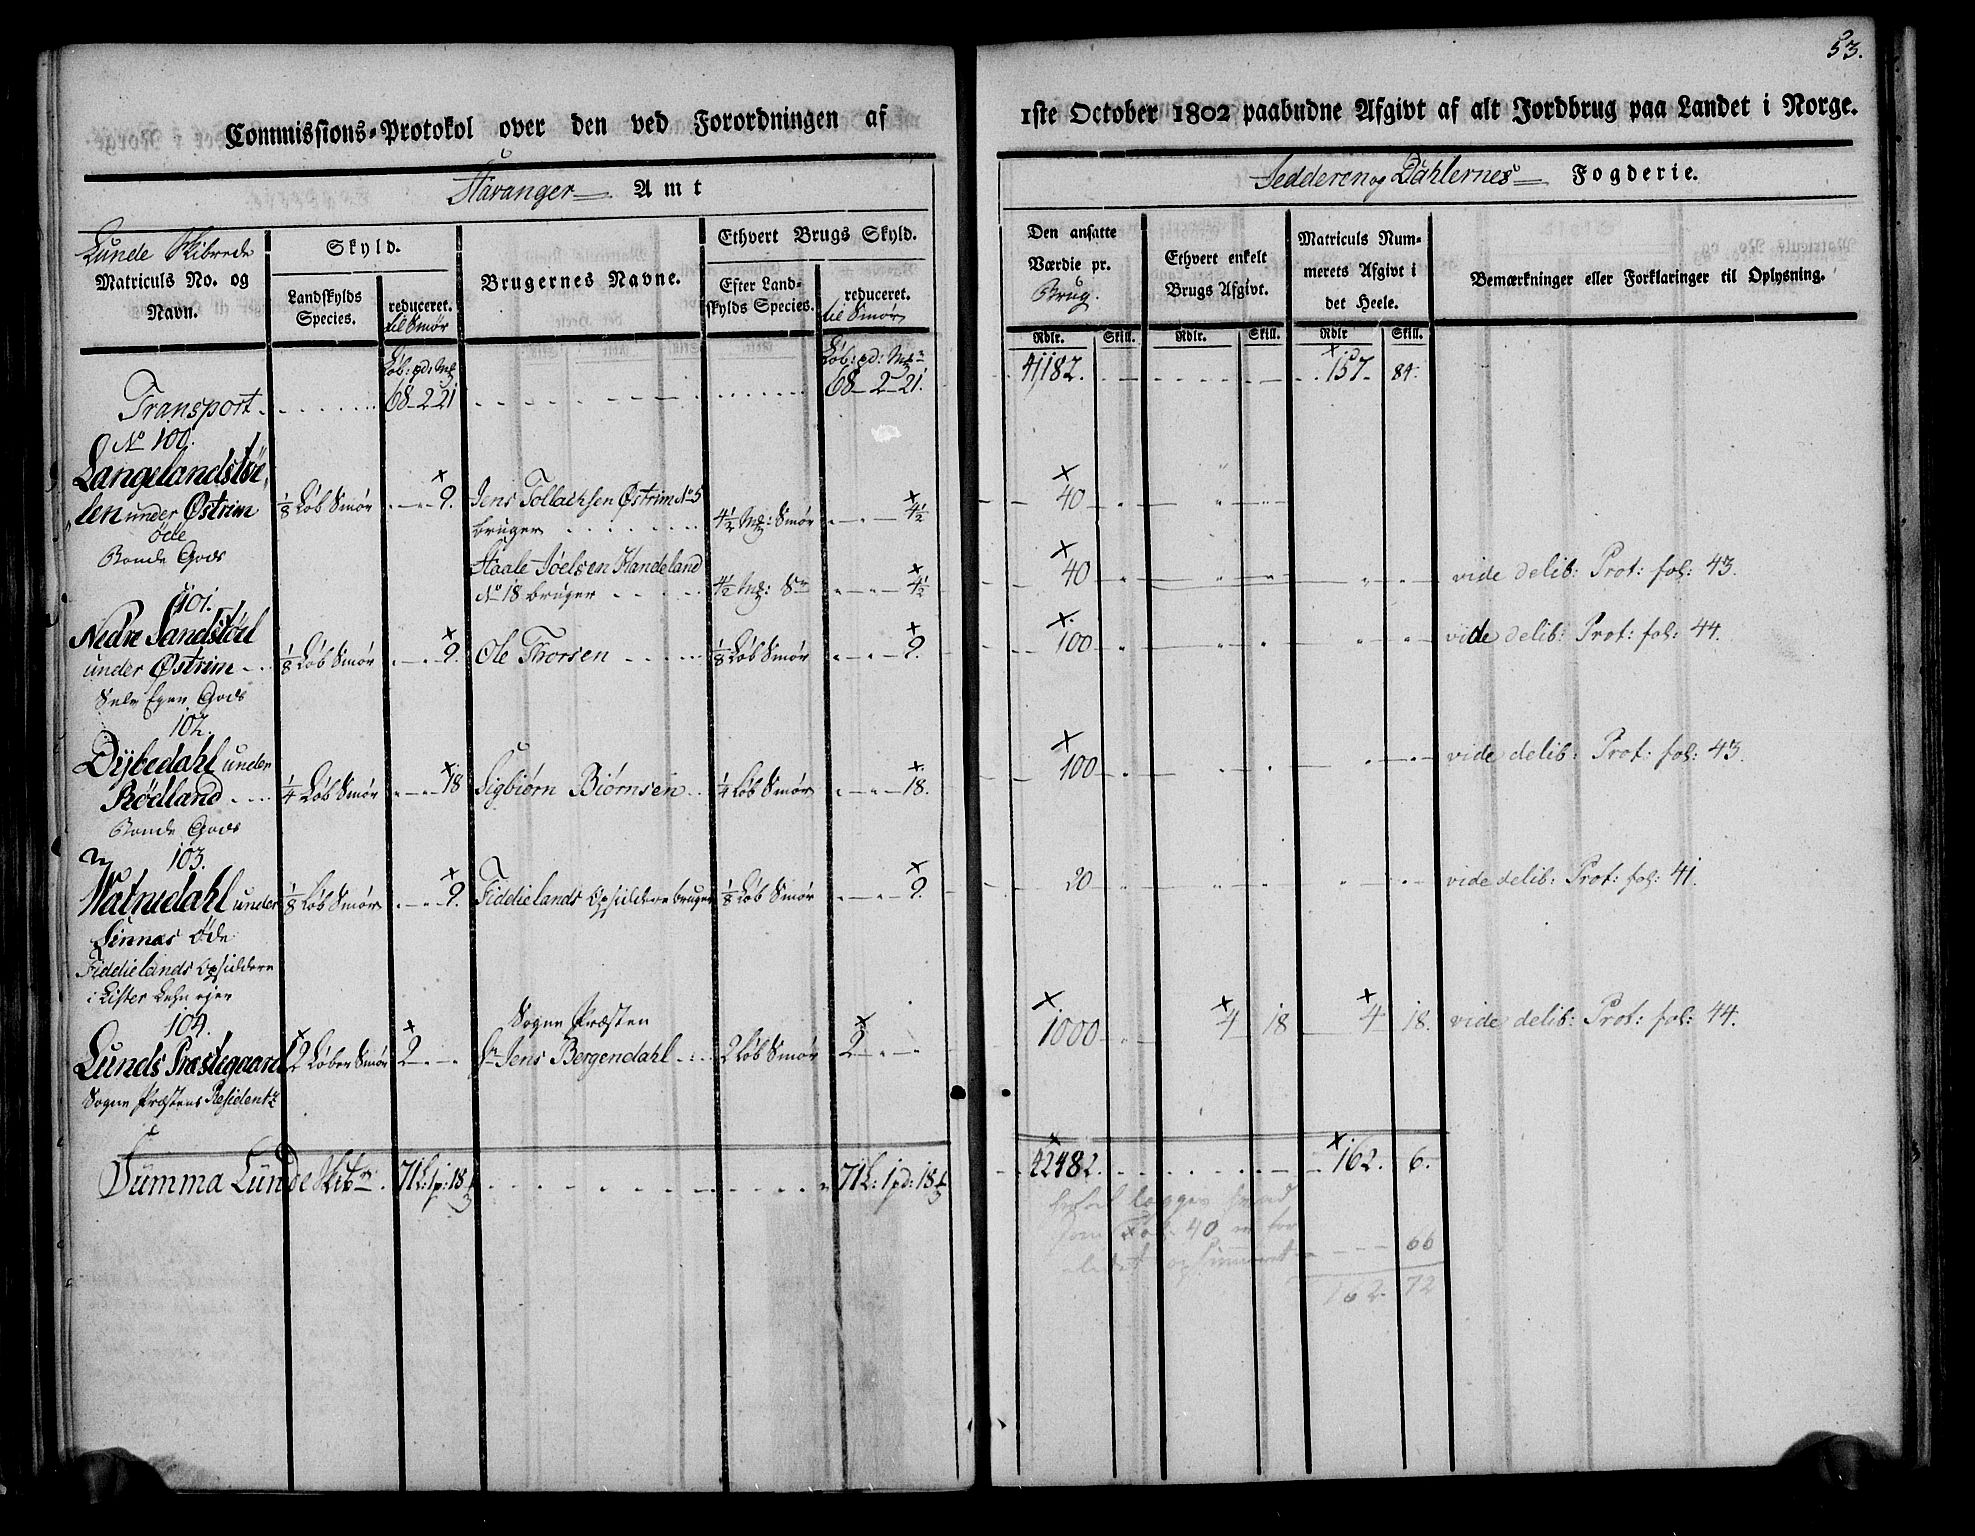 53.
Commissions-Protokol over den ved Forordningen af 1ste October 1802 paabudne Afgivt af alt Jordbrug paa Landet i Norge.
Stavanger Amt
Jedderen og Dahlernes Fogderie.
Lunde Skibrede
Matriculs No. og Navn.
Skyld.
Landskylds Species.
reduceret. til Smør
Brugernes Navne.
Ethvert Brugs Skyld.
Efter Landskylds Species.
reduceret. til Smør
Den ansatte Værdie pr. Brug.
Rdlr. Skill.
Ethvert enkelt Brugs Afgivt.
Rdlr. Skill.
Matriculs Nummerets Afgivt i det Heele.
Rdlr Skill.
Bemærkninger eller Forklaringer til Oplysning.
Løb: pd: Mk Løb: pd: Mk
Transport 68 2 21 68 2 21. 41182. 157. 84.
No 100.
Langelandstøe,
len under Østrim 1/8 Løb Smør 9. Jens Tollachsen Østrim No 5
øde bruger 4½ Mk: Smør 4½ 40
Bonde Gods Staale Joelsen Handeland
No 18 bruger 4½ Mk: Sm 4½ 40 vide delib: Prot: fol: 43.
101.
Nedre Sandstøel
under Østrim 1/8 Løb Smør 9. Ole Thorsen 1/8 Løb Smør 9. 100 vide delib: Prot: fol: 44.
Selv Eyer Gods
102.
Dybedahl under
Rødland 1/4 Løb Smør 18 Sigbiørn Biørnsen 1/4 Løb Smør 18. 100 vide delib: Prot: fol: 43.
Bonde Gods
103.
Watnedahl under 1/8 Løb Smør 9. Fiddielands Opsiddere bruger 1/8 Løb Smør 9. 20 vide delib: Prot: fol: 41.
Linnæs Øde
Fiddielands Opsiddere
i Lister Lehn ejer
104. Sogne Præsten
Lunds Præstegaard 2 Løber Smør 2 Hr Jens Bergendahl 2 Løb Smør 2 1000 4 18 4 18. vide delib: Prot: fol: 44.
Sogne Præstens Residents
Summa Lunde Skibr. 71 L: 1 p: 18 1/3 71 L: 1 pd: 18 1/3 42482. 162. 6.
lægges
som Fol: 40 66
162. 72